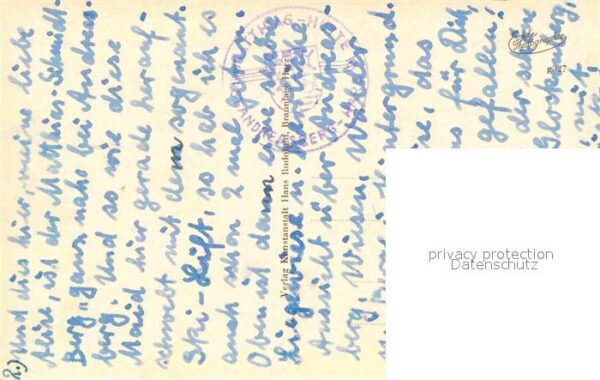 2.) Und dies hier, meine liebe
Aline, ist der Matthias-Schmidt-
Berg, ganz nahe bei Andreas-
berg. Und so wie diese
Maid hier gerade herauf
schwebt mit dem sogenannt.
Ski-Lift, so hab ich es
auch schon 2 mal gemacht.
Oben ist dann eine schöne
Liegewiese u. herrliche
Aussicht über Andreas-
berg, Wiesen, Wälder
das
für Dich,
gefallen,
dir schöne
Glocken
mit,
MATTHIAS
HÜTTE
ANDREASBERG
HARZ
Verlag Kunstanstalt Hans Rudolphi, Braunlage Harz
Echte Photographie
privacy protection
Datenschutz